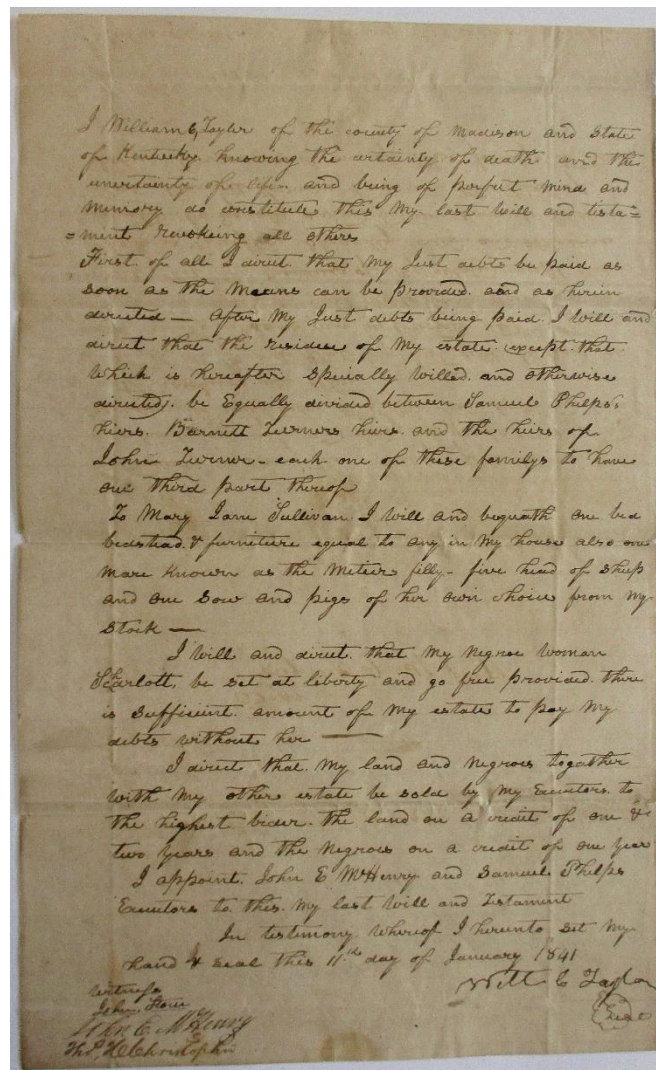 I William C, Taylor of the county of Madison and State
of Kentucky knowing the certainty of death and the
uncertainty of life and being of perfect mind and
Memory do constitute this My last Will and testa=
=ment revokeing all others
First of all I direct that My Just debts be paid as
soon as the Means can be provided and as herein
directed — After My Just debts being paid I will and
direct that the residue of My estate (except that
Which is hereafter Specially Willed and otherwise
directed) be Equally divided between Samuel Phelps,
hiers. Barnett Turners hiers and the heirs of
John Turner – each one of these familys to have
one third part thereof
To Mary Jane Sullivan I will and bequath one bed
bedstead & furniture equal to any in My house also one
Mare Known as the filly – five head of sheep
and one Sow and pigs of her own choice from My
Stock —
I Will and direct that My Negroe Woman
Scharlott, be set at liberty and go free provided there
is Sufficient amount of My estate to pay My
debts without her —
I direct that My land and Negroes togather
with My other estate be sold by My Executors to
the highest bider. the land on a credit of one &
two years and the Negroes on a credit of one Year
I appoint John E McHenry and Samuel Phelps
Executors to this My last Will and Testament
In testimony Whereof I hereunto Set My
hand & Seal this 11th day of January 1841
Will C Taylor
Seal
Witness
John
John E McHenry
Thos. H Christopher